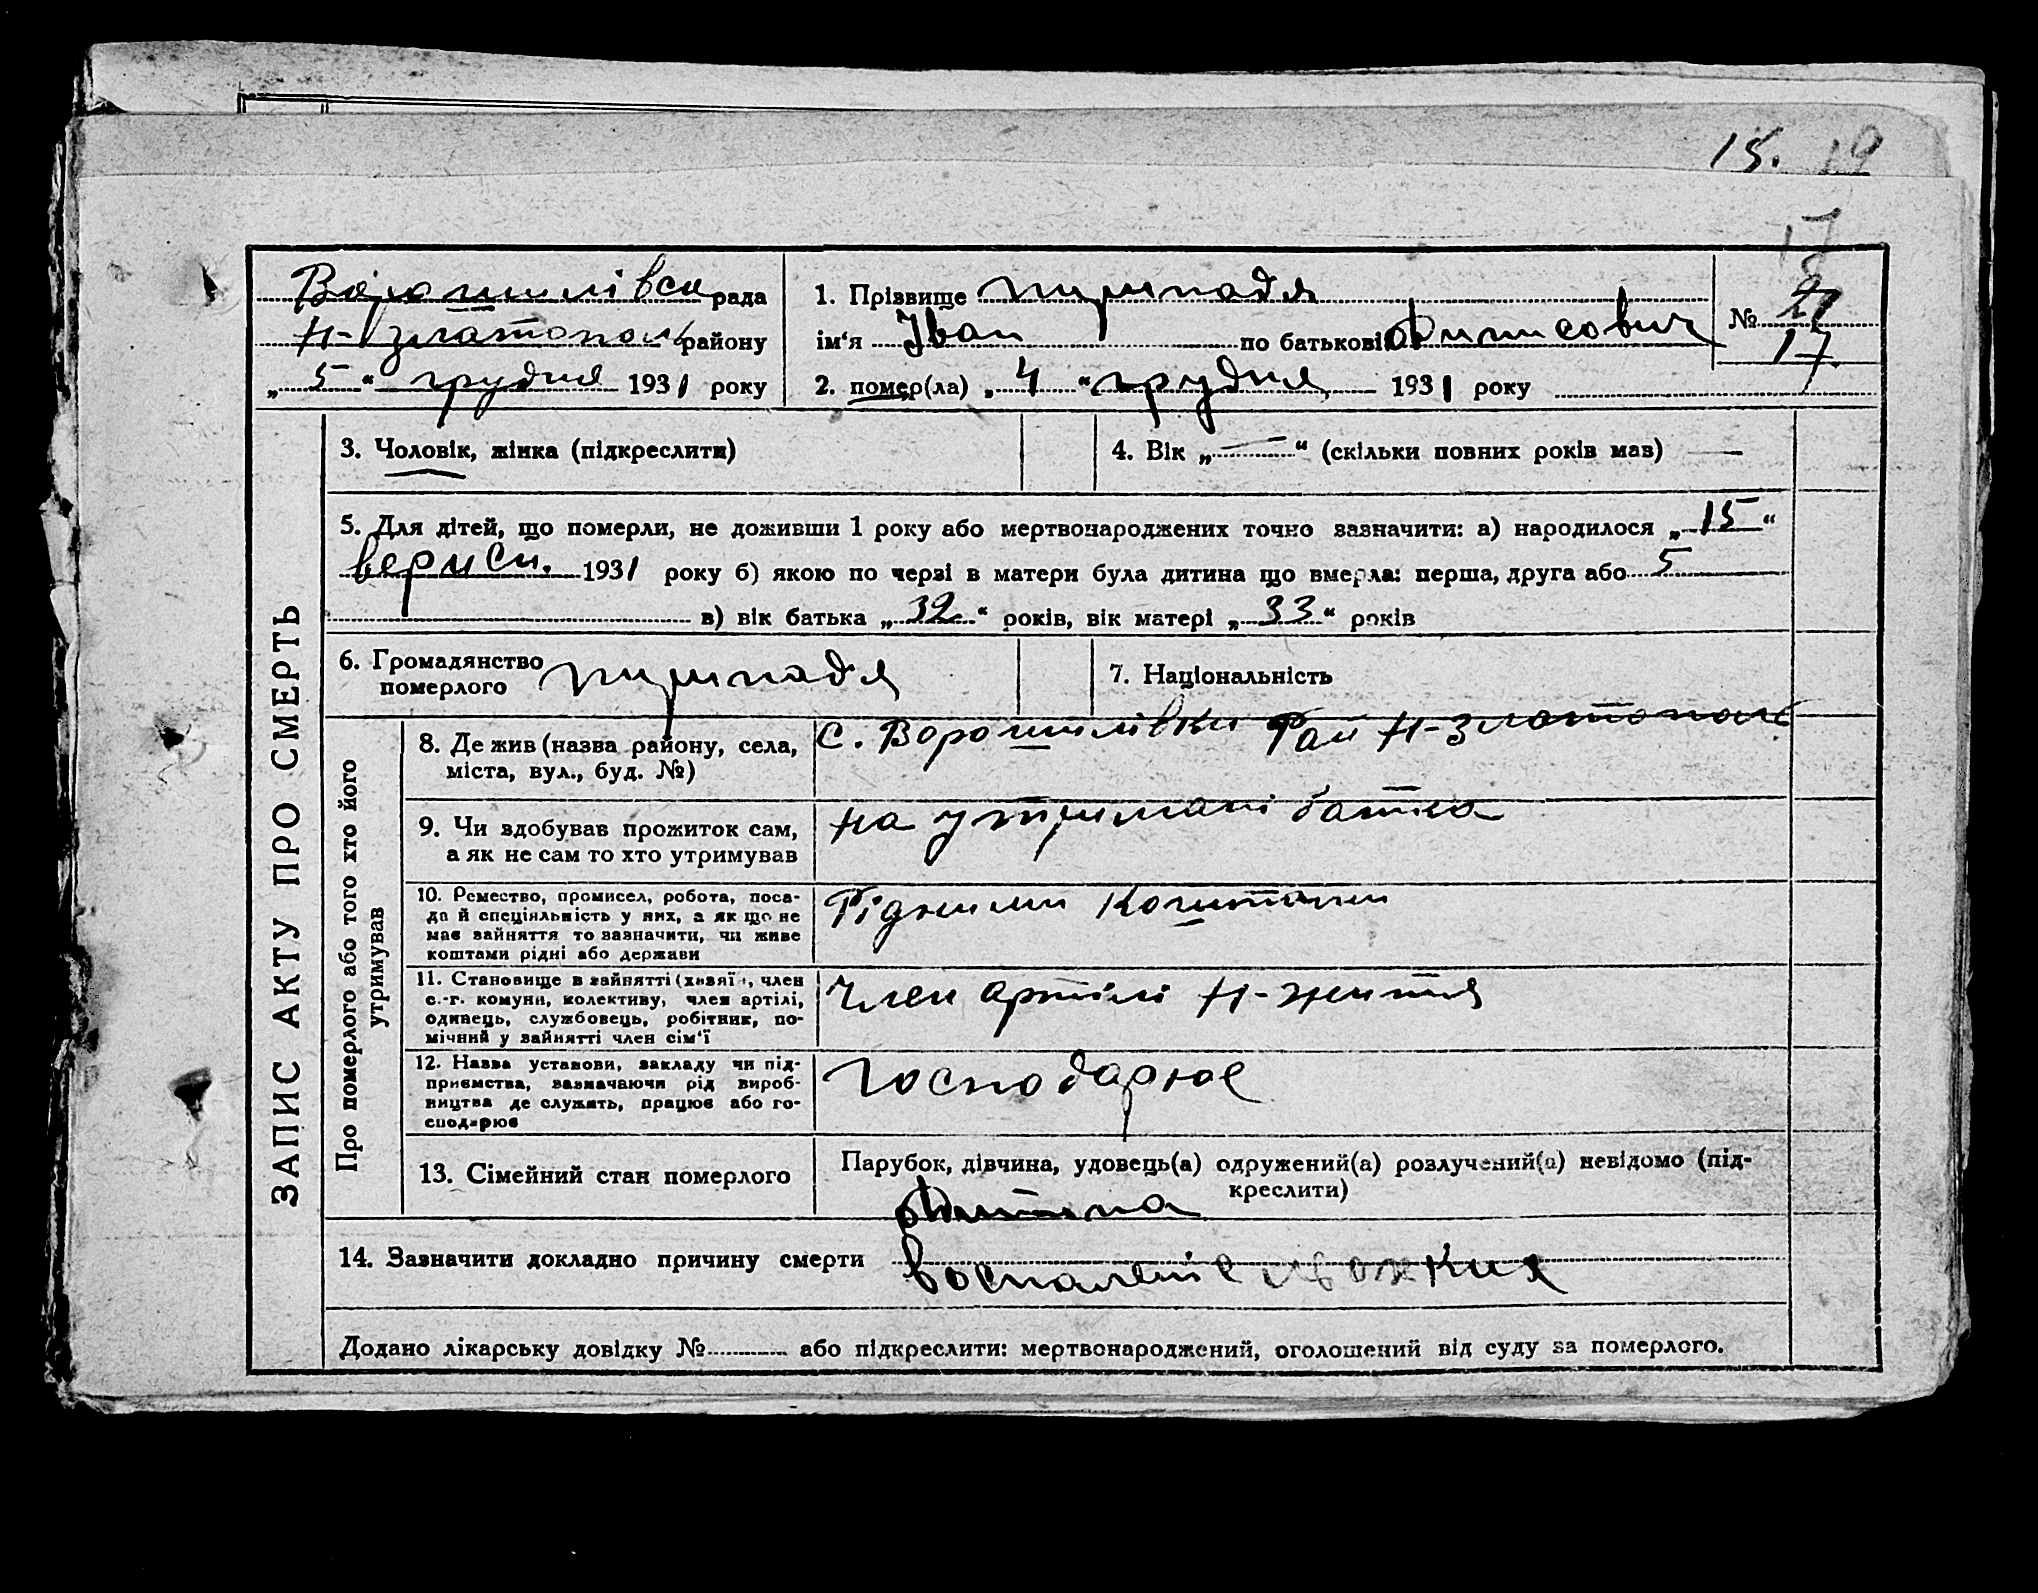 15. 19
17
Ворошилівсп рада
Н-Златополь району
„ 5 “ грудня 1931 року
1. Прізвище Пирпадя
ім‘я Іван по батькові Динисович
2. помер(ла) „ 4 “ грудня 1931 року
№ 21
17
ЗАПИС АКТУ ПРО СМЕРТЬ
3. Чоловік, жінка (підкреслити)
4. Вік „ — “ (скільки повних років мав) —
5. Для дітей, що померли, не доживши 1 року або мертвонароджених точно зазначити: а) народилося „ 15 “
вериси. 1931 року б) якою по черзі в матери була дитина що вмерла: перша, друга або 5
в) вік батька „ 32 “ років, вік матері „ 33 “ років
6. Громадянство
померлого
7. Національність
Про померлого або того хто його
утримував
8. Де жив (назва району, села,
міста, вул., буд. №)
С. Ворошилівки Рай Н-Златополь
9. Чи здобував прожиток сам,
а як не сам то хто утримував
На утримані батка
10. Ремество, промисел, робота, поса-
да й спеціяльність у них, а як що не
має зайняття то зазначити, чи живе
коштами рідні або держави
Рідними коштами
11. Становище в зайнятті (хазяїн, член
с.-г. комуни, колективу, член артілі,
одинець, службовець, робітник, по-
мічний у зайнятті член сім‘ї
Член артілі Н-життя
12. Назва установи, закладу чи під-
приємства, зазначаючи рід вироб-
ництва де служить, працює або го-
сподарює
Господарює
13. Сімейний стан померлого
Парубок, дівчина, удовець(а) одружений(а) розлучений(а) невідомо (під-
креслити)
Дитина
14. Зазначити докладно причину смерти
воспаленіе
Додано лікарську довідку № або підкреслити: мертвонароджений, оголошений від суду за померлого.